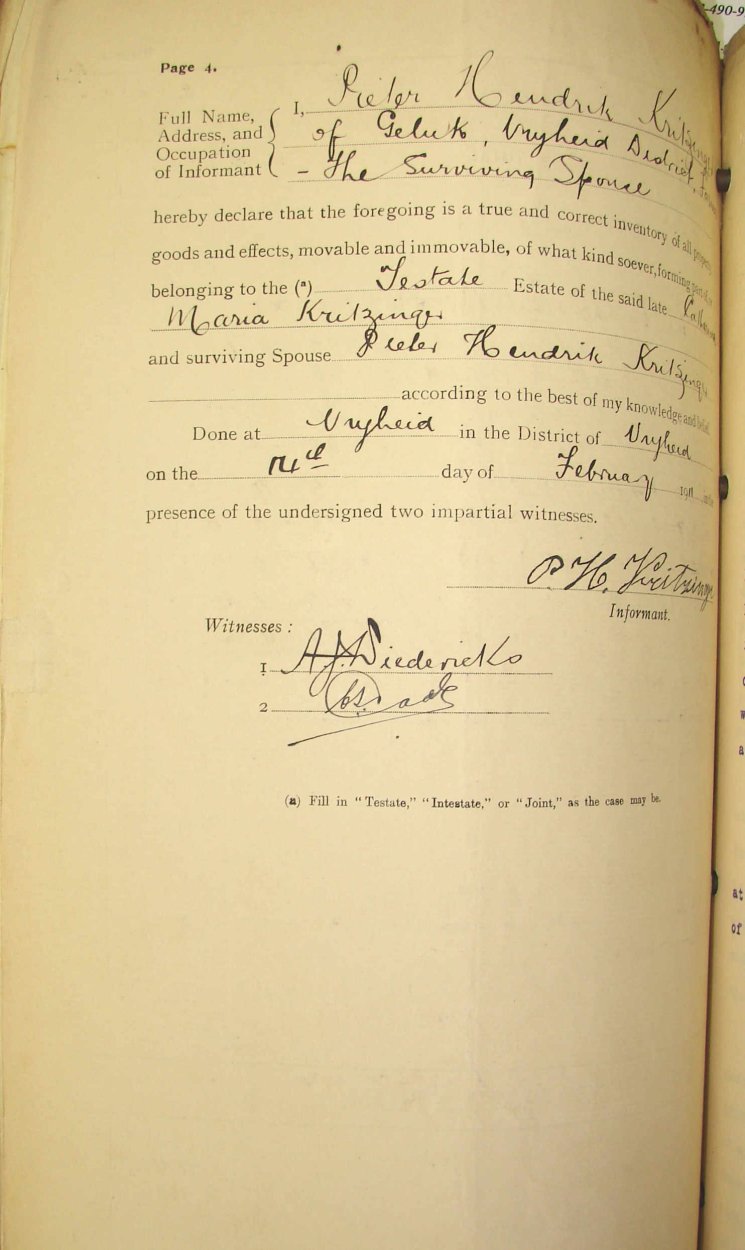 -490-9
Page 4.
Full Name,
Address, and
Occupation
of Informant
I, Pieter Hendrik Kritzinger
of Geluk, Vryheid District,
- The Surviving Spouse
hereby declare that the foregoing is a true and correct inventory of all property
goods and effects, movable and immovable, of what kind soever, forming part of or
belonging to the (a) Testate Estate of the said late
Maria Kritzinger
and surviving Spouse Pieter Hendrik Kritzinger
according to the best of my knowledge and belief.
Done at Vryheid in the District of Vryheid
on the 14th day of February 191 in the
presence of the undersigned two impartial witnesses.
P. H. Kritzinger
Informant.
Witnesses :
1 A J Diedericks
2
(a) Fill in "Testate," "Intestate," or "Joint," as the case may be.
at
of